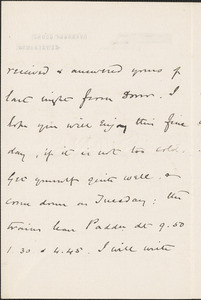 received & answered yours of
last night from Dover. I
hope you will enjoy this fine
day, if it is not too cold.
Get yourself quite well &
come down on Tuesday: the
trains leave Paddn at 9.50
1.30 & 4.45. I will write